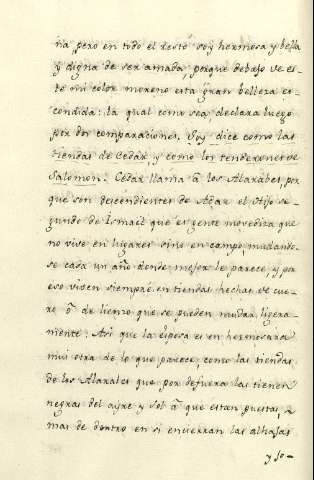 ña, pero en todo el resto soy hermosa y bella
y digna de ser amada porque debajo de es-
te mi color moreno esta gran belleza es-
condida: la qual como sea declara luego
por dos comparaciones. Soy dice como las
tiendas de Cedar, y como los tendexones de
Salomon: Cedar llama à los Alarabes, por
que son descendientes de Agar el Hijo se-
gundo de Ismael que es gente movediza que
no vive en lugares sino en campo, mudando-
se cada un año donde mejor le parece, y por
eso viven siempre en tiendas hechas de cue-
ro ò de lienzo que se pueden mudar ligera-
mente: Asi que la esposa es en hermosura
mui otra de lo que parece, como las tiendas
de los Alarabes que por defuera las tienen
negras del ayre y sol à que estan puestas,
mas de dentro en si encierran las alhajas
y jo-